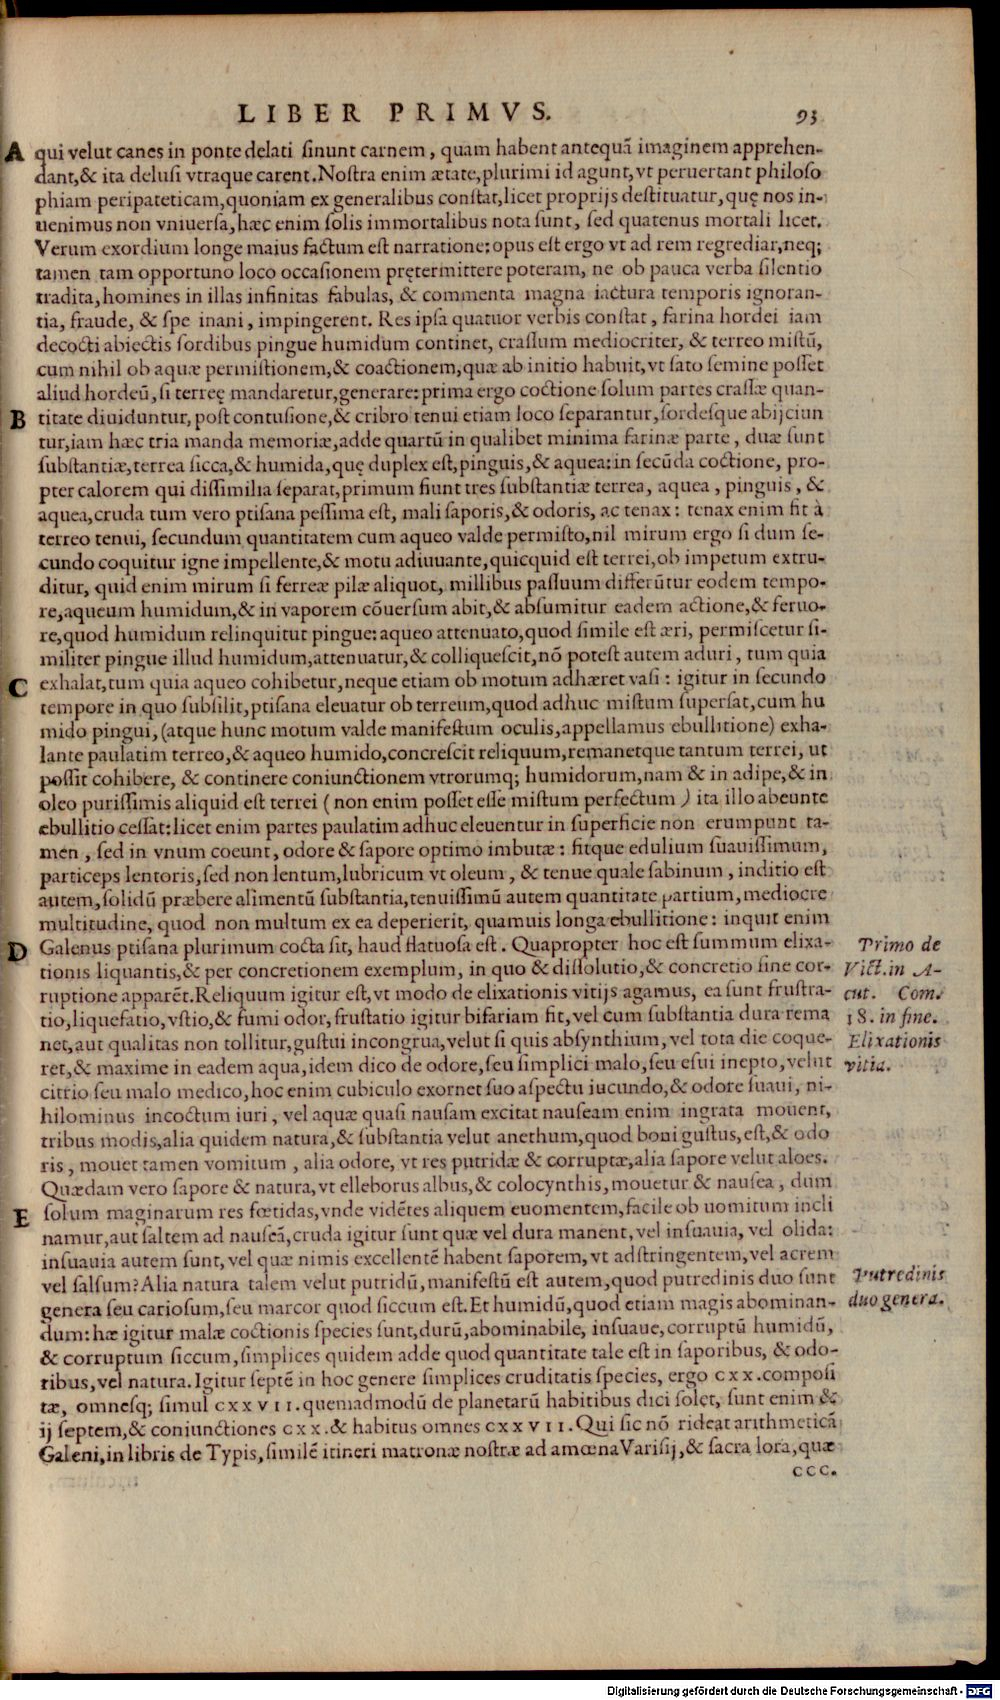 LIBER PRIMVS. 93
A qui velut canes in ponte delati sinunt carnem, quam habent antequã imaginem apprehen-
dant, & ita delusi vtraque carent. Nostra enim ætate, plurimi id agunt, vt peruertant philoso
phiam peripateticam, quoniam ex generalibus constat, licet proprijs destituatur, quę nos in-
uenimus non vniuersa, hæc enim solis immortalibus nota sunt, sed quatenus mortali licet.
Verum exordium longe maius factum est narratione: opus est ergo vt ad rem regrediar, neq;
tamen tam opportuno loco occasionem prętermittere poteram, ne ob pauca verba silentio
tradita, homines in illas infinitas fabulas, & commenta magna iactura temporis ignoran-
tia, fraude, & spe inani, impingerent. Res ipsa quatuor verbis constat, farina hordei iam
decocti abiectis sordibus pingue humidum continet, crassum mediocriter, & terreo mistũ,
cum nihil ob aquæ permistionem, & coactionem, quæ ab initio habuit, vt sato semine posset
aliud hordeũ, si terreę mandaretur, generare: prima ergo coctione solum partes crassæ quan-
B titate diuiduntur, post contusione, & cribro tenui etiam loco separantur, sordesque abijciun
tur, iam hæc tria manda memoriæ, adde quartũ in qualibet minima farinæ parte, duæ sunt
substantiæ, terrea sicca, & humida, quę duplex est, pinguis, & aquea: in secũda coctione, pro-
pter calorem qui dissimilia separat, primum fiunt tres substantiæ terrea, aquea, pinguis, &
aquea, cruda tum vero ptisana pessima est, mali saporis, & odoris, ac tenax: tenax enim fit à
terreo tenui, secundum quantitatem cum aqueo valde permisto, nil mirum ergo si dum se-
cundo coquitur igne impellente, & motu adiuuante, quicquid est terrei, ob impetum extru-
ditur, quid enim mirum si ferreæ pilæ aliquot, millibus passuum differũtur eodem tempo-
re, aqueum humidum, & in vaporem cõuersum abit, & absumitur eadem actione, & feruo-
re, quod humidum relinquitut pingue: aqueo attenuato, quod simile est æri, permiscetur si-
militer pingue illud humidum, attenuatur, & colliquescit, nõ potest autem aduri, tum quia
C exhalat, tum quia aqueo cohibetur, neque etiam ob motum adhæret vasi: igitur in secundo
tempore in quo subsilit, ptisana eleuatur ob terreum, quod adhuc mistum superſat, cum hu
mido pingui, (atque hunc motum valde manifestum oculis, appellamus ebullitione) exha-
lante paulatim terreo, & aqueo humido, concrescit reliquum, remanetque tantum terrei, ut
possit cohibere, & continere coniunctionem vtrorumq; humidorum, nam & in adipe, & in
oleo purissimis aliquid est terrei (non enim posset esse mistum perfectum) ita illo abeunte
ebullitio cessat: licet enim partes paulatim adhuc eleuentur in superficie non erumpunt ta-
men, sed in vnum coeunt, odore & sapore optimo imbutæ: fitque edulium suauissimum,
particeps lentoris, sed non lentum, lubricum vt oleum, & tenue quale sabinum, inditio est
autem, solidũ præbere alimentũ substantia, tenuissimũ autem quantitate partium, mediocre
multitudine, quod non multum ex ea deperierit, quamuis longa ebullitione: inquit enim
D Galenus ptisana plurimum cocta sit, haud flatuosa est. Quapropter hoc est summum elixa-
tionis liquantis, & per concretionem exemplum, in quo & dissolutio, & concretio sine cor-
ruptione apparẽt. Reliquum igitur est, vt modo de elixationis vitijs agamus, ea sunt frustra-
tio, liquefatio, vstio, & fumi odor, frustatio igitur bifariam fit, vel cum substantia dura rema
net, aut qualitas non tollitur, gustui incongrua, velut si quis absynthium, vel tota die coque-
ret, & maxime in eadem aqua, idem dico de odore, seu simplici malo, seu esui inepto, velut
citrio seu malo medico, hoc enim cubiculo exornet suo aspectu iucundo, & odore suaui, ni-
hilominus incoctum iuri, vel aquæ quasi nausam excitat nauseam enim ingrata mouent,
tribus modis, alia quidem natura, & substantia velut anethum, quod boni gustus, est, & odo
ris, mouet tamen vomitum, alia odore, vt res putridæ & corruptæ, alia sapore velut aloes.
Quædam vero sapore & natura, vt elleborus albus, & colocynthis, mouetur & nausea, dum
E solum maginarum res fœtidas, vnde vidẽtes aliquem euomentem, facile ob uomitum incli
namur, aut saltem ad nauseã, cruda igitur sunt quæ vel dura manent, vel insuauia, vel olida:
insuauia autem sunt, vel quæ nimis excellentẽ habent saporem, vt adstringentem, vel acrem
vel salsum? Alia natura talem velut putridũ, manifestũ est autem, quod putredinis duo sunt
genera seu cariosum, seu marcor quod siccum est. Et humidũ, quod etiam magis abominan-
dum: hæ igitur malæ coctionis species sunt, durũ, abominabile, insuaue, corruptũ humidũ,
& corruptum siccum, simplices quidem adde quod quantitate tale est in saporibus, & odo-
ribus, vel natura. Igitur septẽ in hoc genere simplices cruditatis species, ergo CXX. composi
tæ, omnesq; simul CXXVII. quemadmodũ de planetarũ habitibus dici solet, sunt enim &
ij septem, & coniunctiones CXX. & habitus omnes CXXVII. Qui sic nõ rideat arithmeticã
Galeni, in libris de Typis, similẽ itineri matronæ nostræ ad amœna Varisij, & sacra lora, quæ
ccc.
Primo de
Vict. in A-
cut. Com.
18. in fine.
Elixationis
vitia.
Putredinis
duo genera.
Digitalisierung gefördert durch die Deutsche Forschungsgemeinschaft - DFG